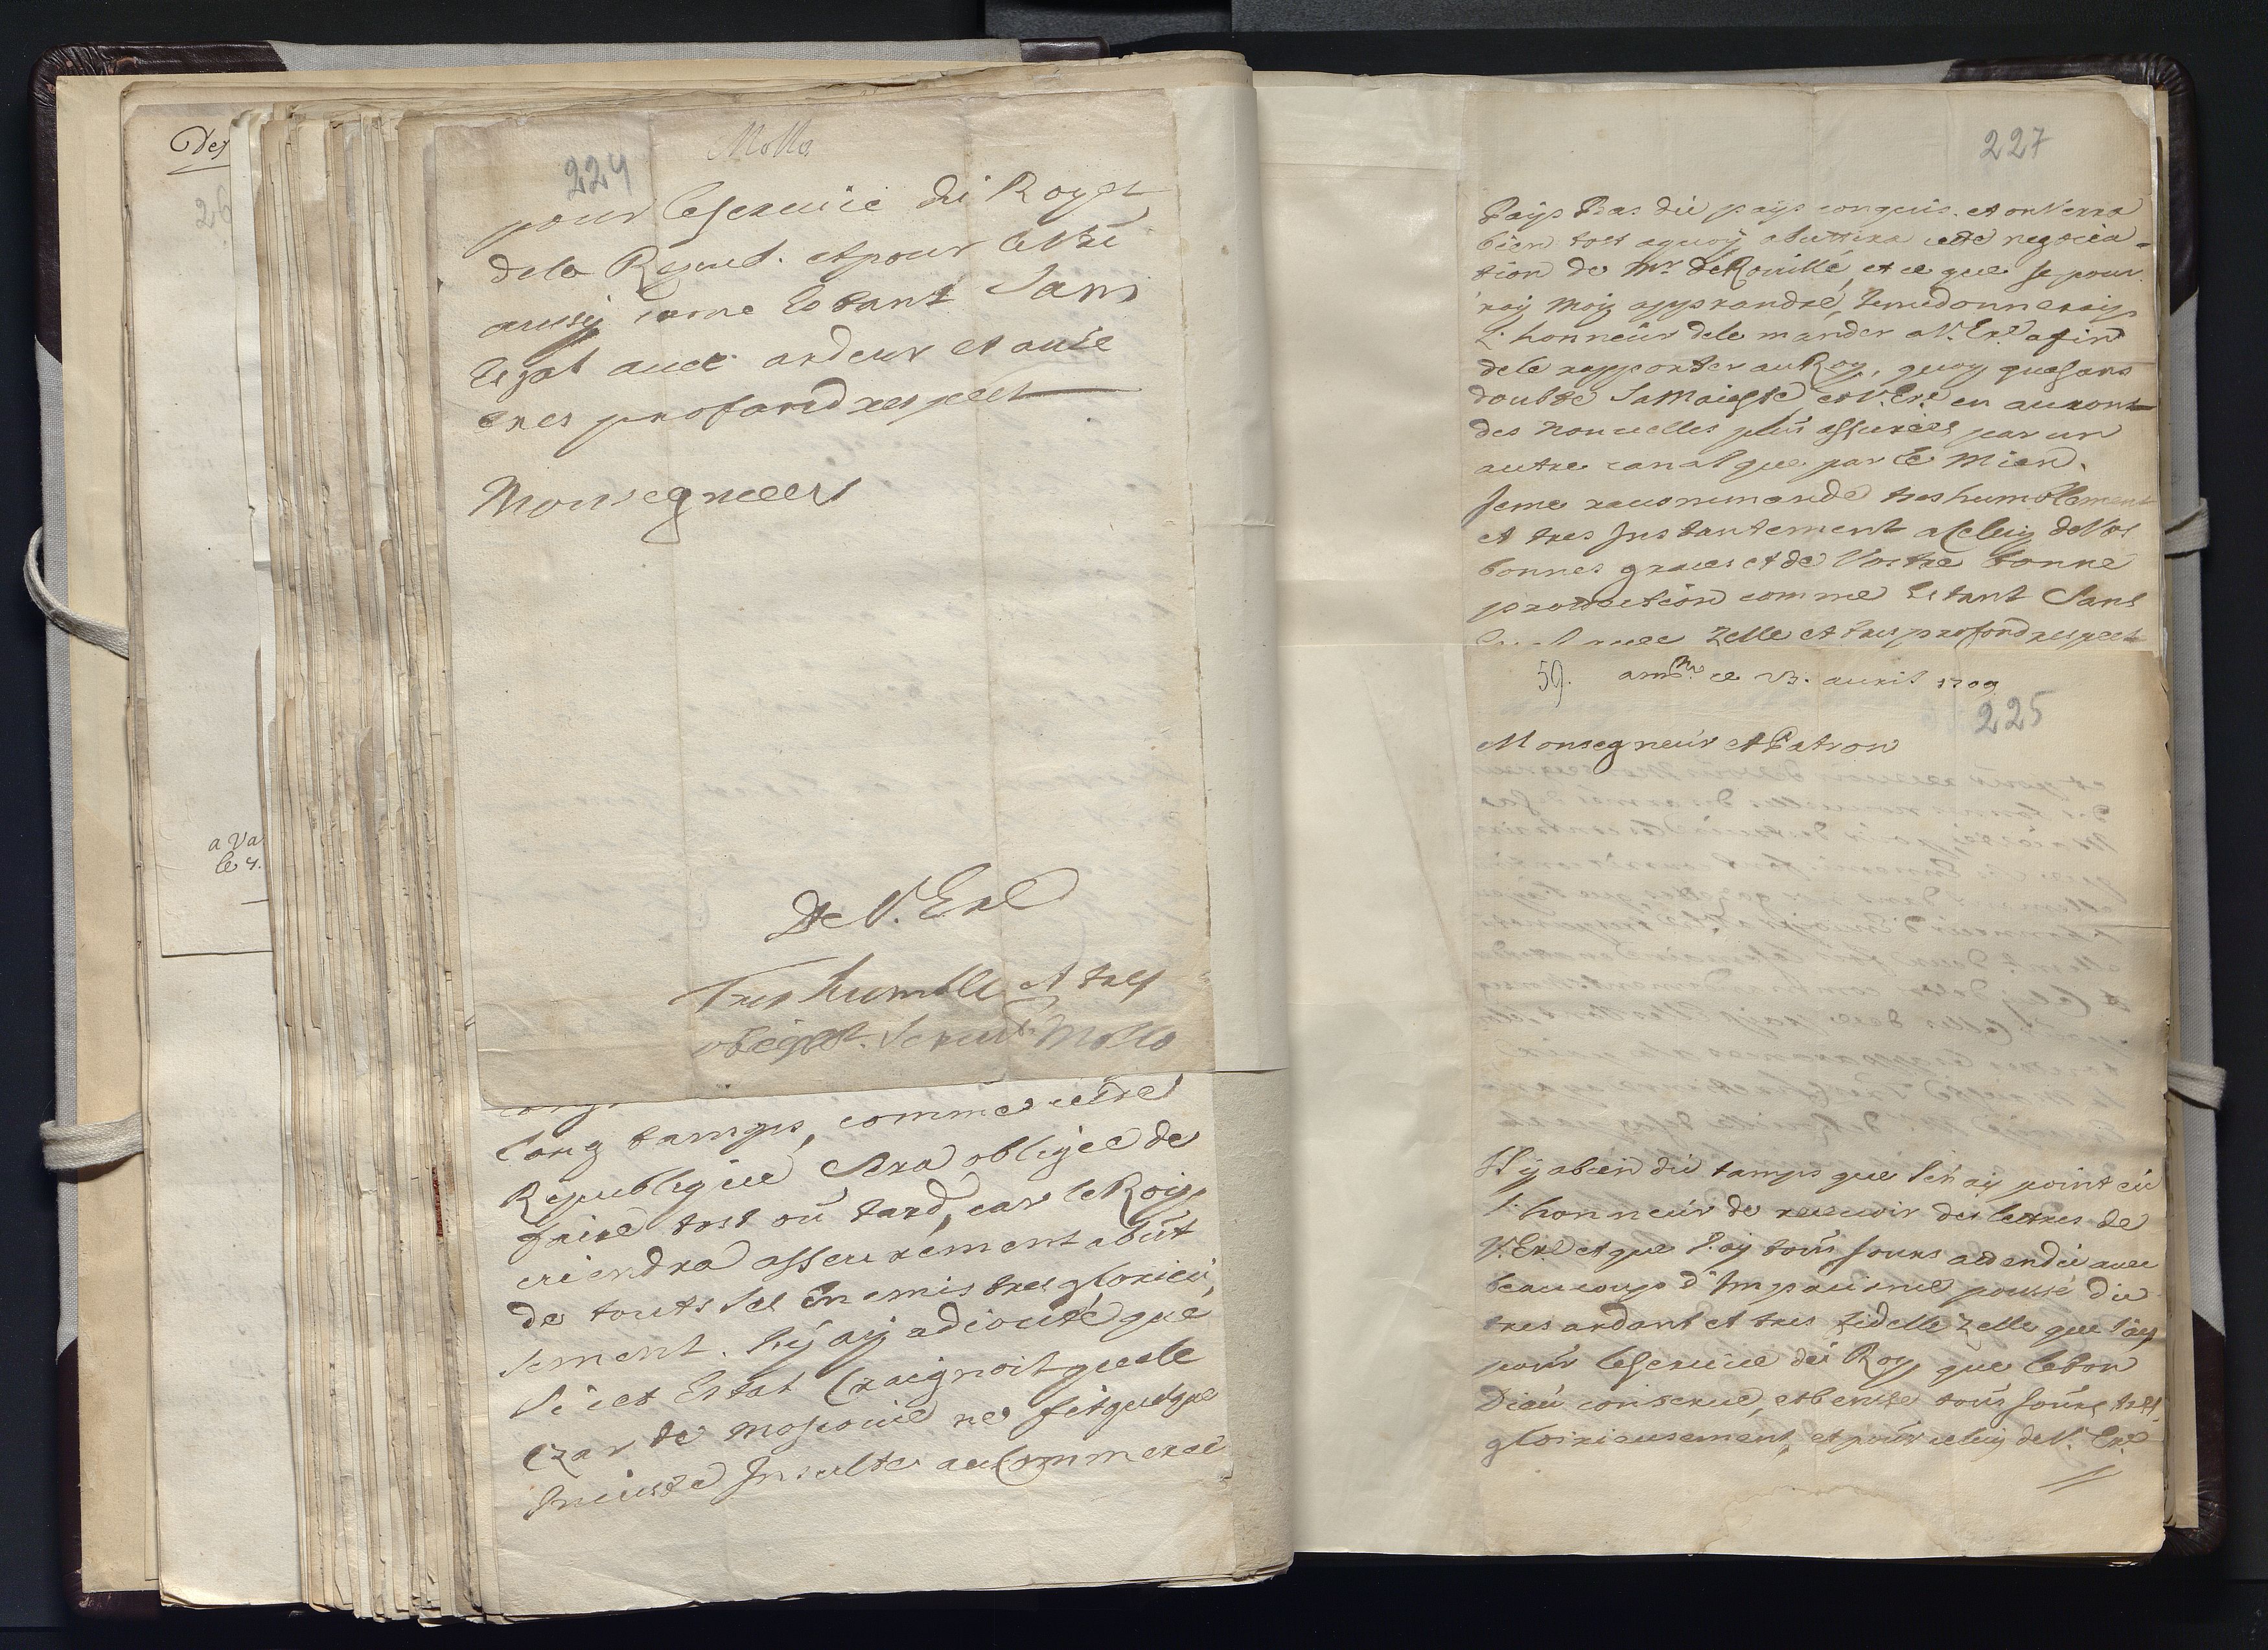 Des
26
a Va
le 4.
Mollo
224
pour leseruice du Roy et
dela Repub. et pour le Vre
aussy come Estant Sans
Egal auec ardeur et auie
tres profond respect
Monsegneur
De V. Exe
Tres humble et tres
obeisst. Seruitr Mollo
long tamps, comme cette
Republique Sera obligée de
faire tost ou tard, car le Roy
viendra assurement a bût
de touts Ses Enemis tres glorieu
sement. Jy ay adiouté que
Si cet Estat Craignoit que le
Czar de Moscouie ne fit quelque
Iniuste Insulte au Commerce
227
Pays Bas du pays conquis. et on Verra
bien tost aquoy abuttira cette negocia-
tion de Mr. de Rouillé, et ce que Je pour
ray moy apprandre, Jemedonneray
l'honneur dele mander a V. Exe. afin
dele rapporter au Roy, quoy que sans
doubte Sa Maieste et V. Exe. en auront
des nouuelles plus assurées par un
autre canal que par le Mien.
Jeme recommande tres humblement
et tres Instantement a Celuy de Vos
bonnes graces et de Vostre bonne
protection comme Estant Sans
auec Zelle et tres profond respect
59. amst. ce 23. auril 1709
225
Monsegneur et Patron
Il y a bien du tamps que Je n'ay point eu
l'honneur de receuoir des lettres de
V. Exe et que J'ay tousjours attendu auec
beaucoup d'Impacience poussé du
tres ardant et tres fidelle Zelle que J'ay
pour leseruice du Roy, que le bon
Dieu conserue, et benisse tousjours tres
glorieusement, et pour celuy de V. Exe